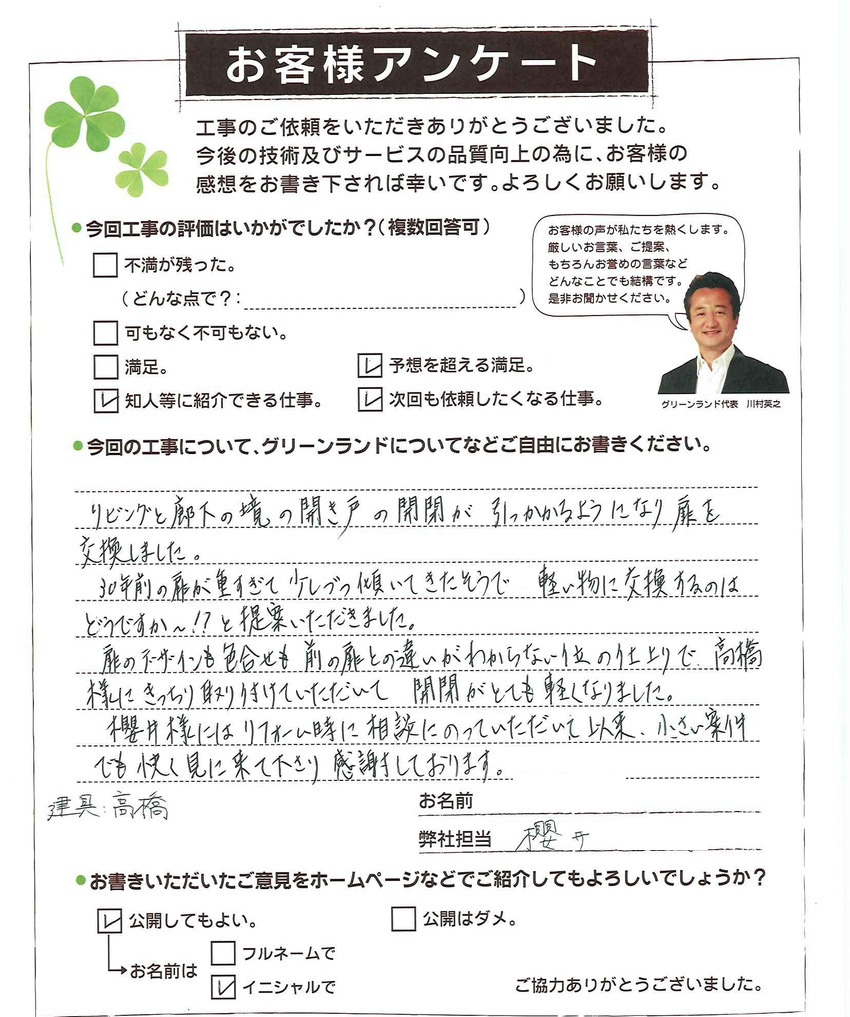 お客様アンケート
工事のご依頼をいただきありがとうございました。
今後の技術及びサービスの品質向上の為に、お客様の
感想をお書き下されば幸いです。よろしくお願いします。
今回工事の評価はいかがでしたか？（複数回答可）
不満が残った。
（どんな点で？：　）
可もなく不可もない。
満足。
予想を超える満足。
知人等に紹介できる仕事。
次回も依頼したくなる仕事。
お客様の声が私たちを熱くします。
厳しいお言葉、ご提案、
もちろんお誉めの言葉など
どんなことでも結構です。
是非お聞かせください。
グリーンランド代表　川村英之
今回の工事について、グリーンランドについてなどご自由にお書きください。
リビングと廊下の境の開き戸の開閉が 引っかかるようになり扉を
交換しました。
30年前の扉が重すぎて 少しづつ傾いてきたそうで 軽い物に交換するのは
どうですか〜!?と提案いただきました。
扉のデザインも色合せも前の扉との違いがわからない位の仕上りで 高橋
様にきっちり取り付けていただいて 開閉がとても軽くなりました。
櫻井様にはリフォーム時に相談にのっていただいて以来、小さい案件
でも快く見に来て下さり感謝しております。
建具:高橋
お名前
弊社担当 櫻井
お書きいただいたご意見をホームページなどでご紹介してもよろしいでしょうか？
公開してもよい。
公開はダメ。
お名前は
フルネームで
イニシャルで
ご協力ありがとうございました。